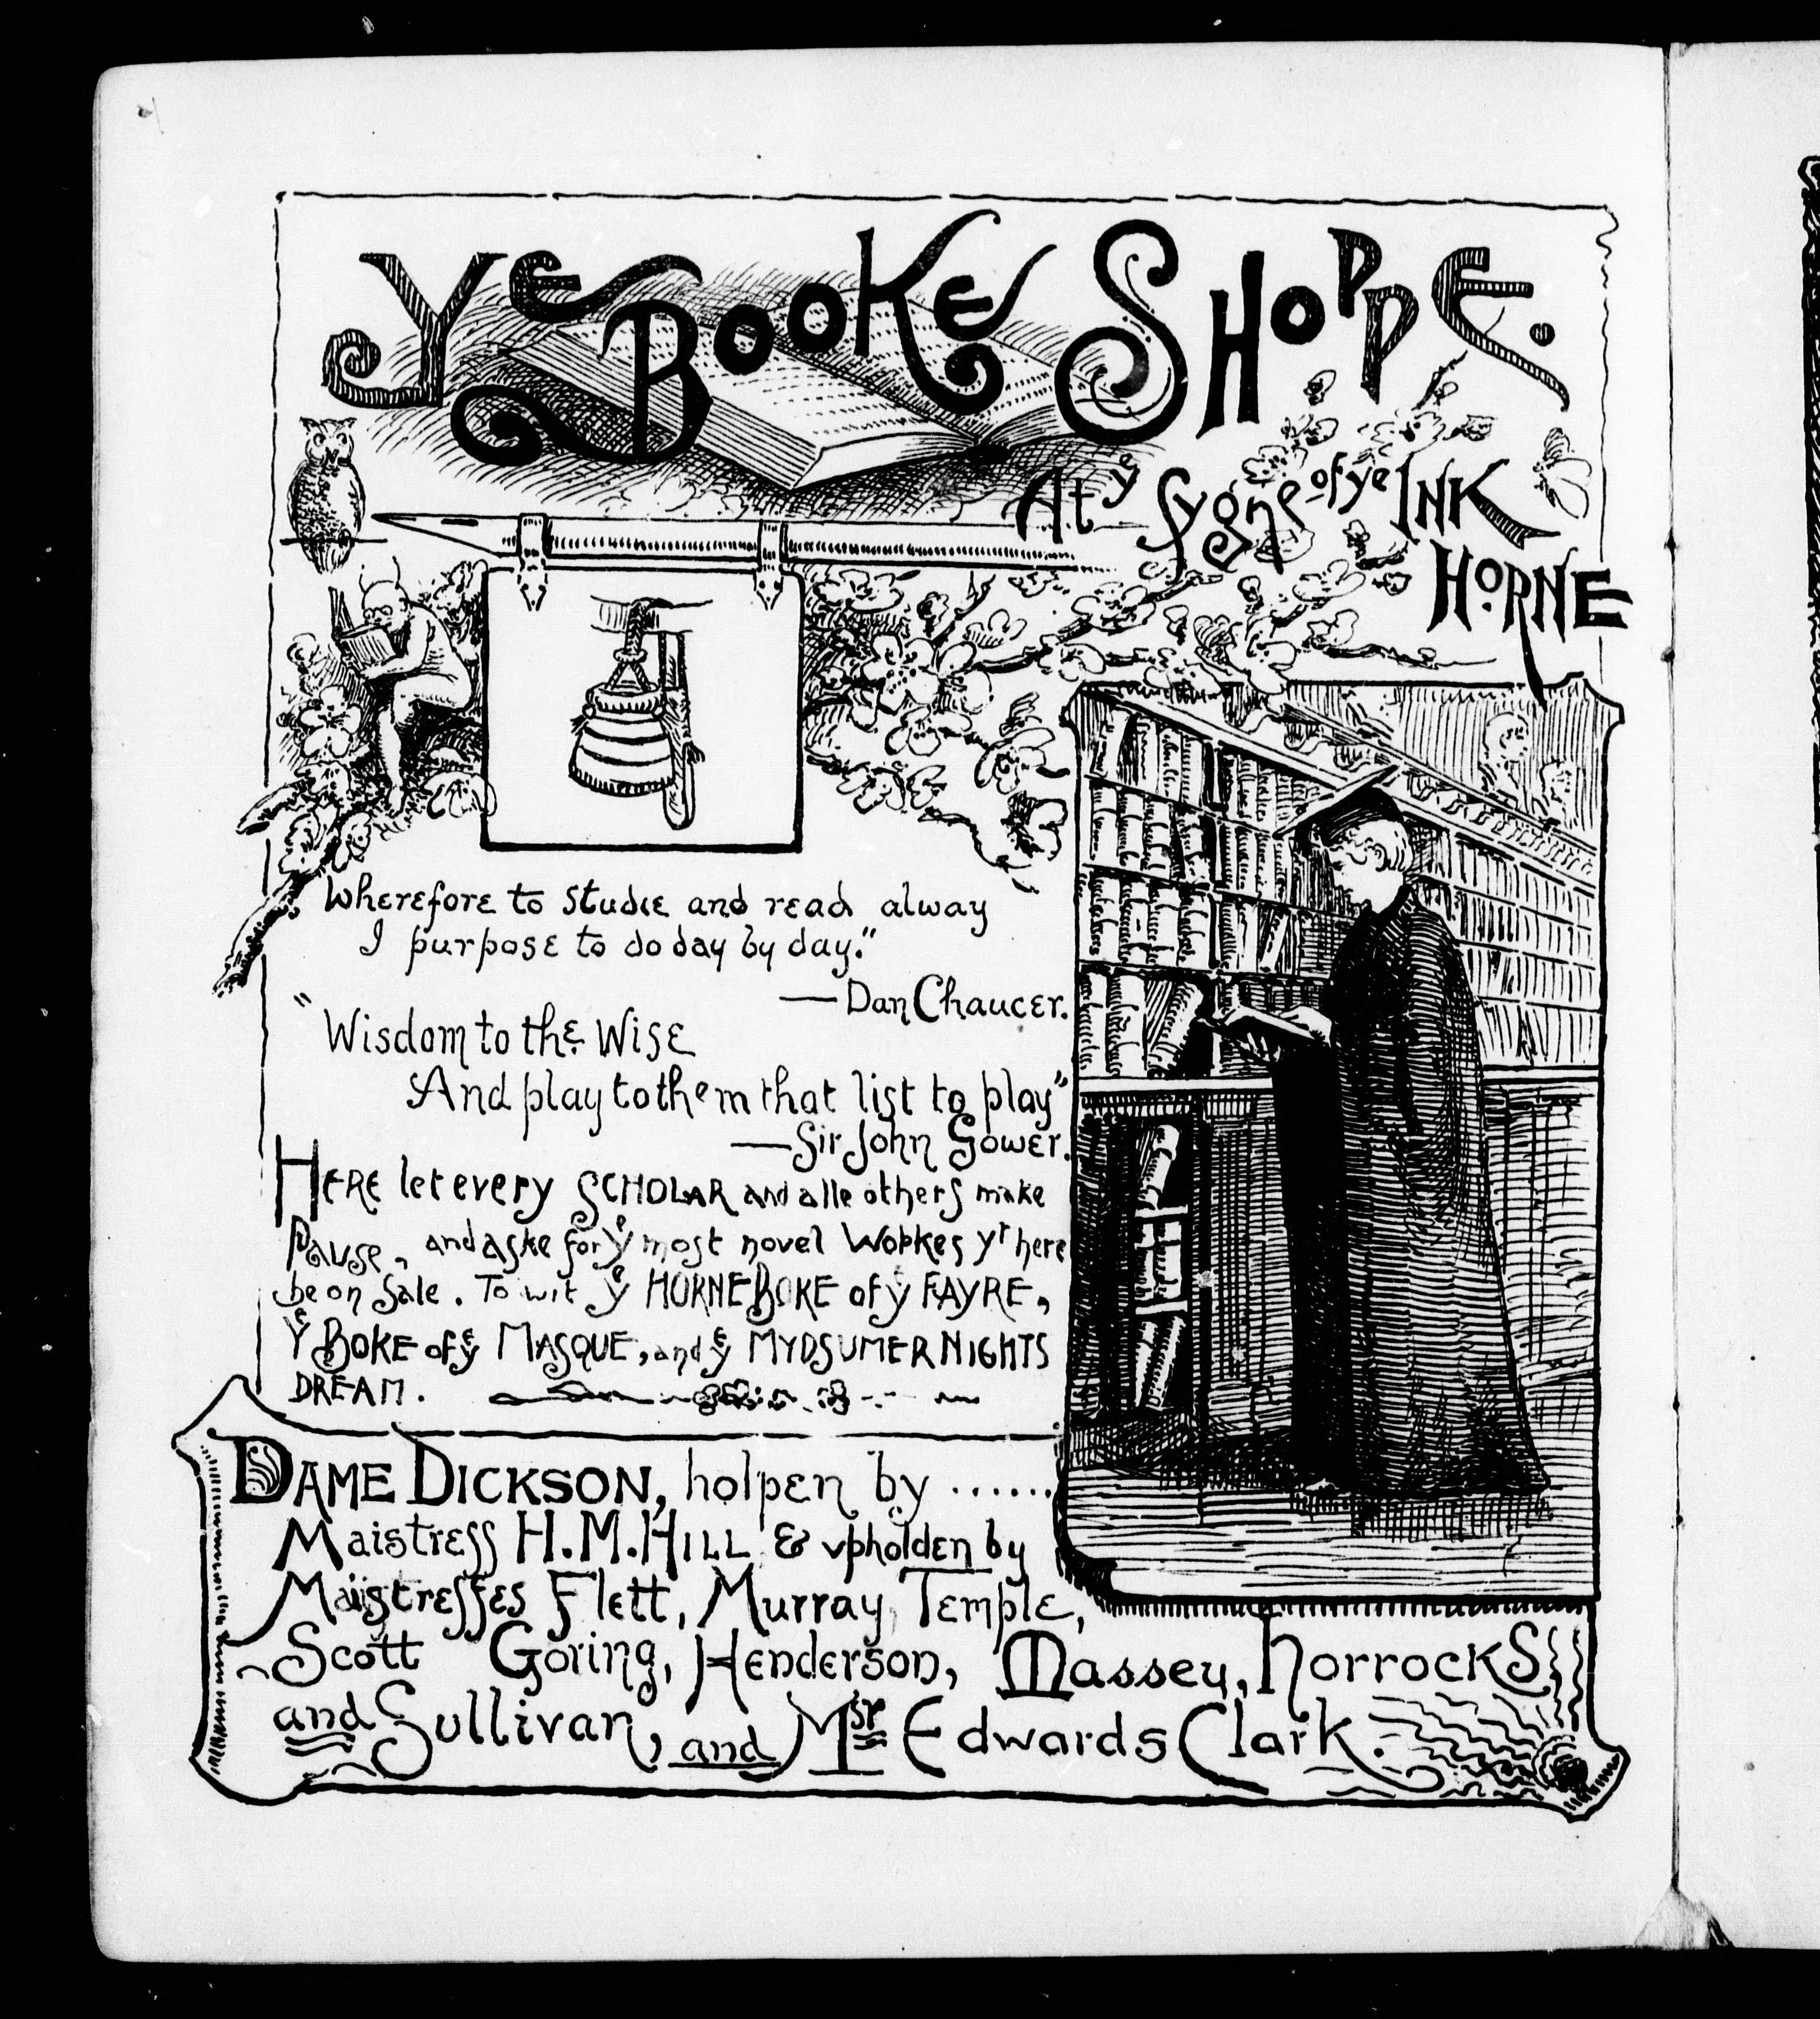 Ye Booke Shoppe.
At ye Sygne of ye Ink
Horne
Wherefore to studie and read alway
I purpose to do day by day."
— Dan Chaucer.
"Wisdom to the Wise
And play to them that list to play"
— Sir John Gower.
Here let every Scholar and alle others make
Pause, and aske for ye most novel Workes yt here
be on Sale. To wit ye Horne Boke of ye Fayre,
Ye Boke of ye Masque, and ye Mydsumer Nights
Dream.
Dame Dickson, holpen by ......
Maistress H.M. Hill & vpholden by
Maistresses Flett, Murray, Temple,
Scott Goring, Henderson, Massey, Horrocks
and Sullivan, and Mstr Edwards Clark.